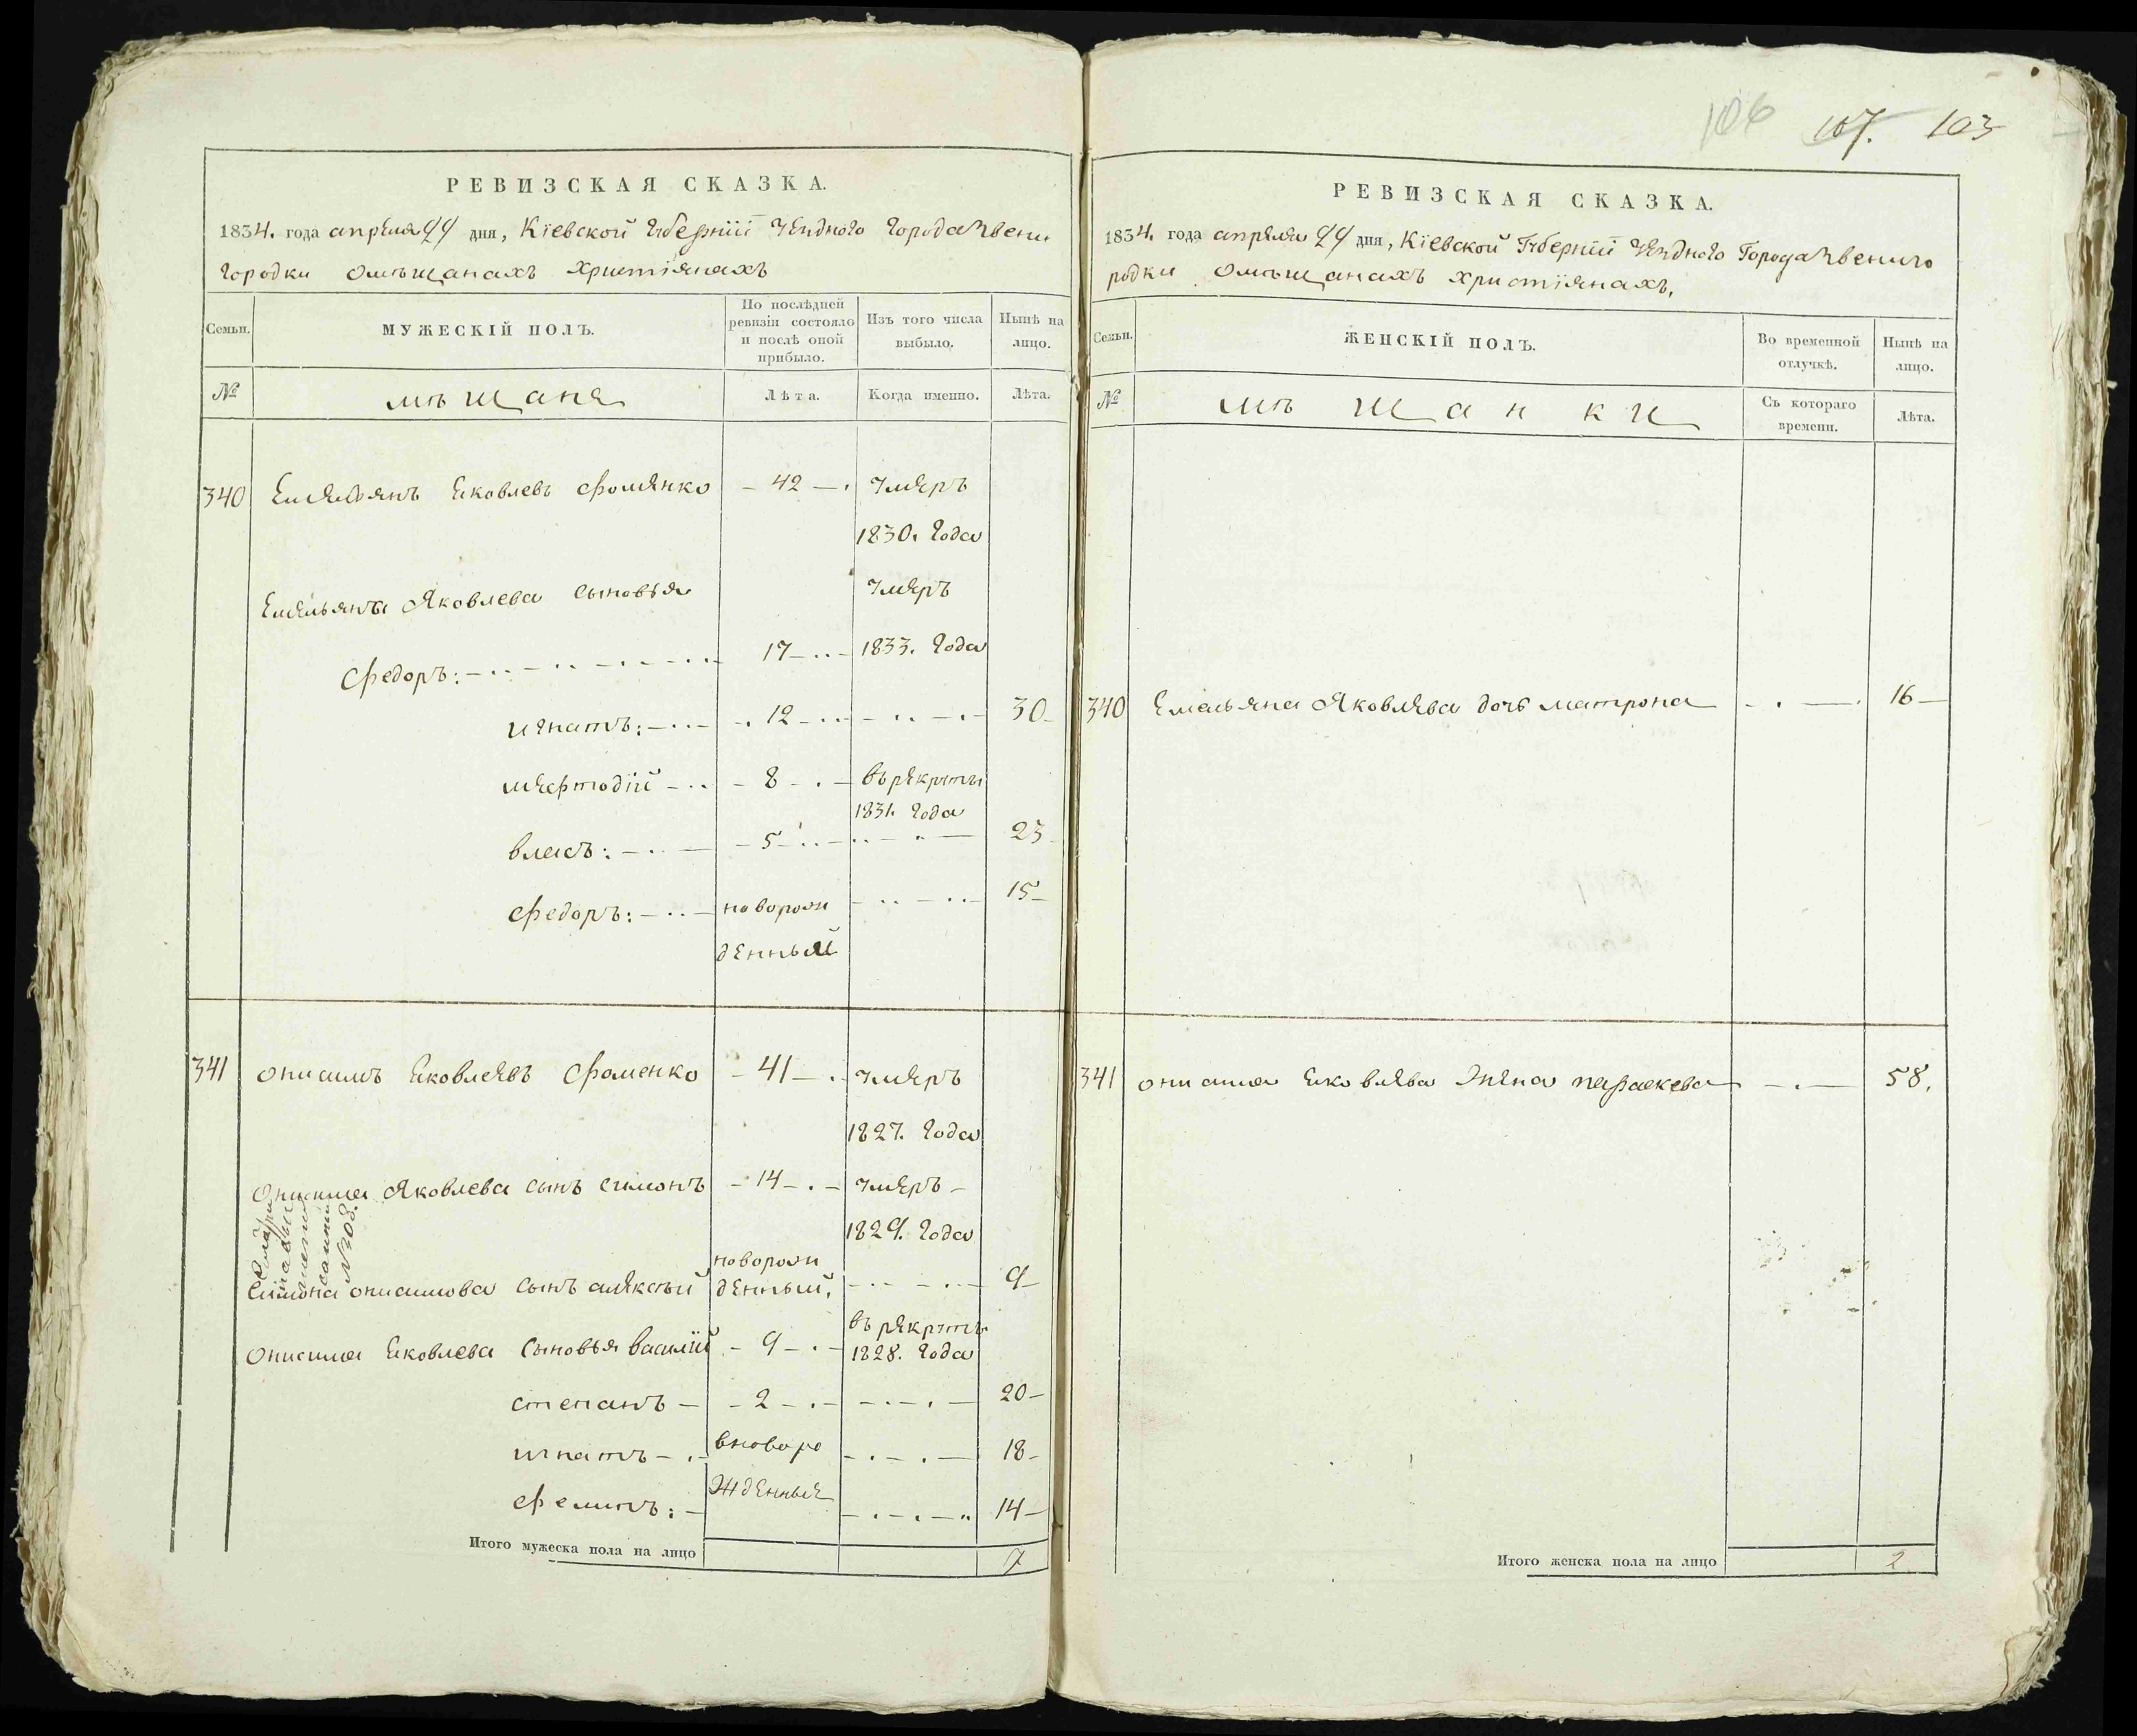 106 107. 103
РЕВИЗСКАЯ СКАЗКА.
1834. года апреля 24 дня, Кіевской Губерніи Уезднаго Города Звени
Городки О мѣщанахъ Христіянахъ
Семьи.
МУЖЕСКІЙ ПОЛЪ.
По послѣдней ревизіи состояло и послѣ оной прибыло.
Изъ того числа выбыло.
Нынѣ на лицо.
№
мѣщане
Лѣта.
Когда именно.
Лѣта.
340 Емельянъ Яковлевъ Фоменко 42 умеръ
1830. Года
Емельяна Яковлева сыновья умеръ
Федоръ: 17 1833. Года
игнатъ: 12 30
мефтодій 8 въ рекруты
1831. Года
власъ: 5 23
Федоръ: новорож 15
денный
341 Онисимъ Яковлевъ Фоменко 41 умеръ
1827. Года
Онисима Яковлева сынъ симонъ 14 умеръ
1829. Года
новорож
Симона Онисимова сынъ алексѣй денный, 9
въ рекруты
Онисима Яковлева сыновья василій 9 1828. Года
степанъ 2 20
игнатъ вноворо 18
жденные
Филипъ: 14
№ 308.
Итого мужеска пола на лицо 7
РЕВИЗСКАЯ СКАЗКА.
1834. года апреля 24 дня, Кіевской Губерніи Уезднаго Города Звениго
родки О мѣщанахъ Христіянахъ,
Семьи.
ЖЕНСКІЙ ПОЛЪ.
Во временной отлучкѣ.
Нынѣ на лицо.
№
мѣщанки
Съ котораго времени.
Лѣта.
340 Емельяна Яковлева дочь матрона 16
341 Онисима Яковлева жена параскева 58.
Итого женска пола на лицо 2